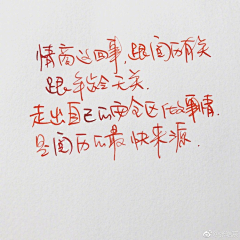 情商这回事，跟阅历有关
跟年龄无关.
走出自己的安全区做事情.
是阅历的最快来源.